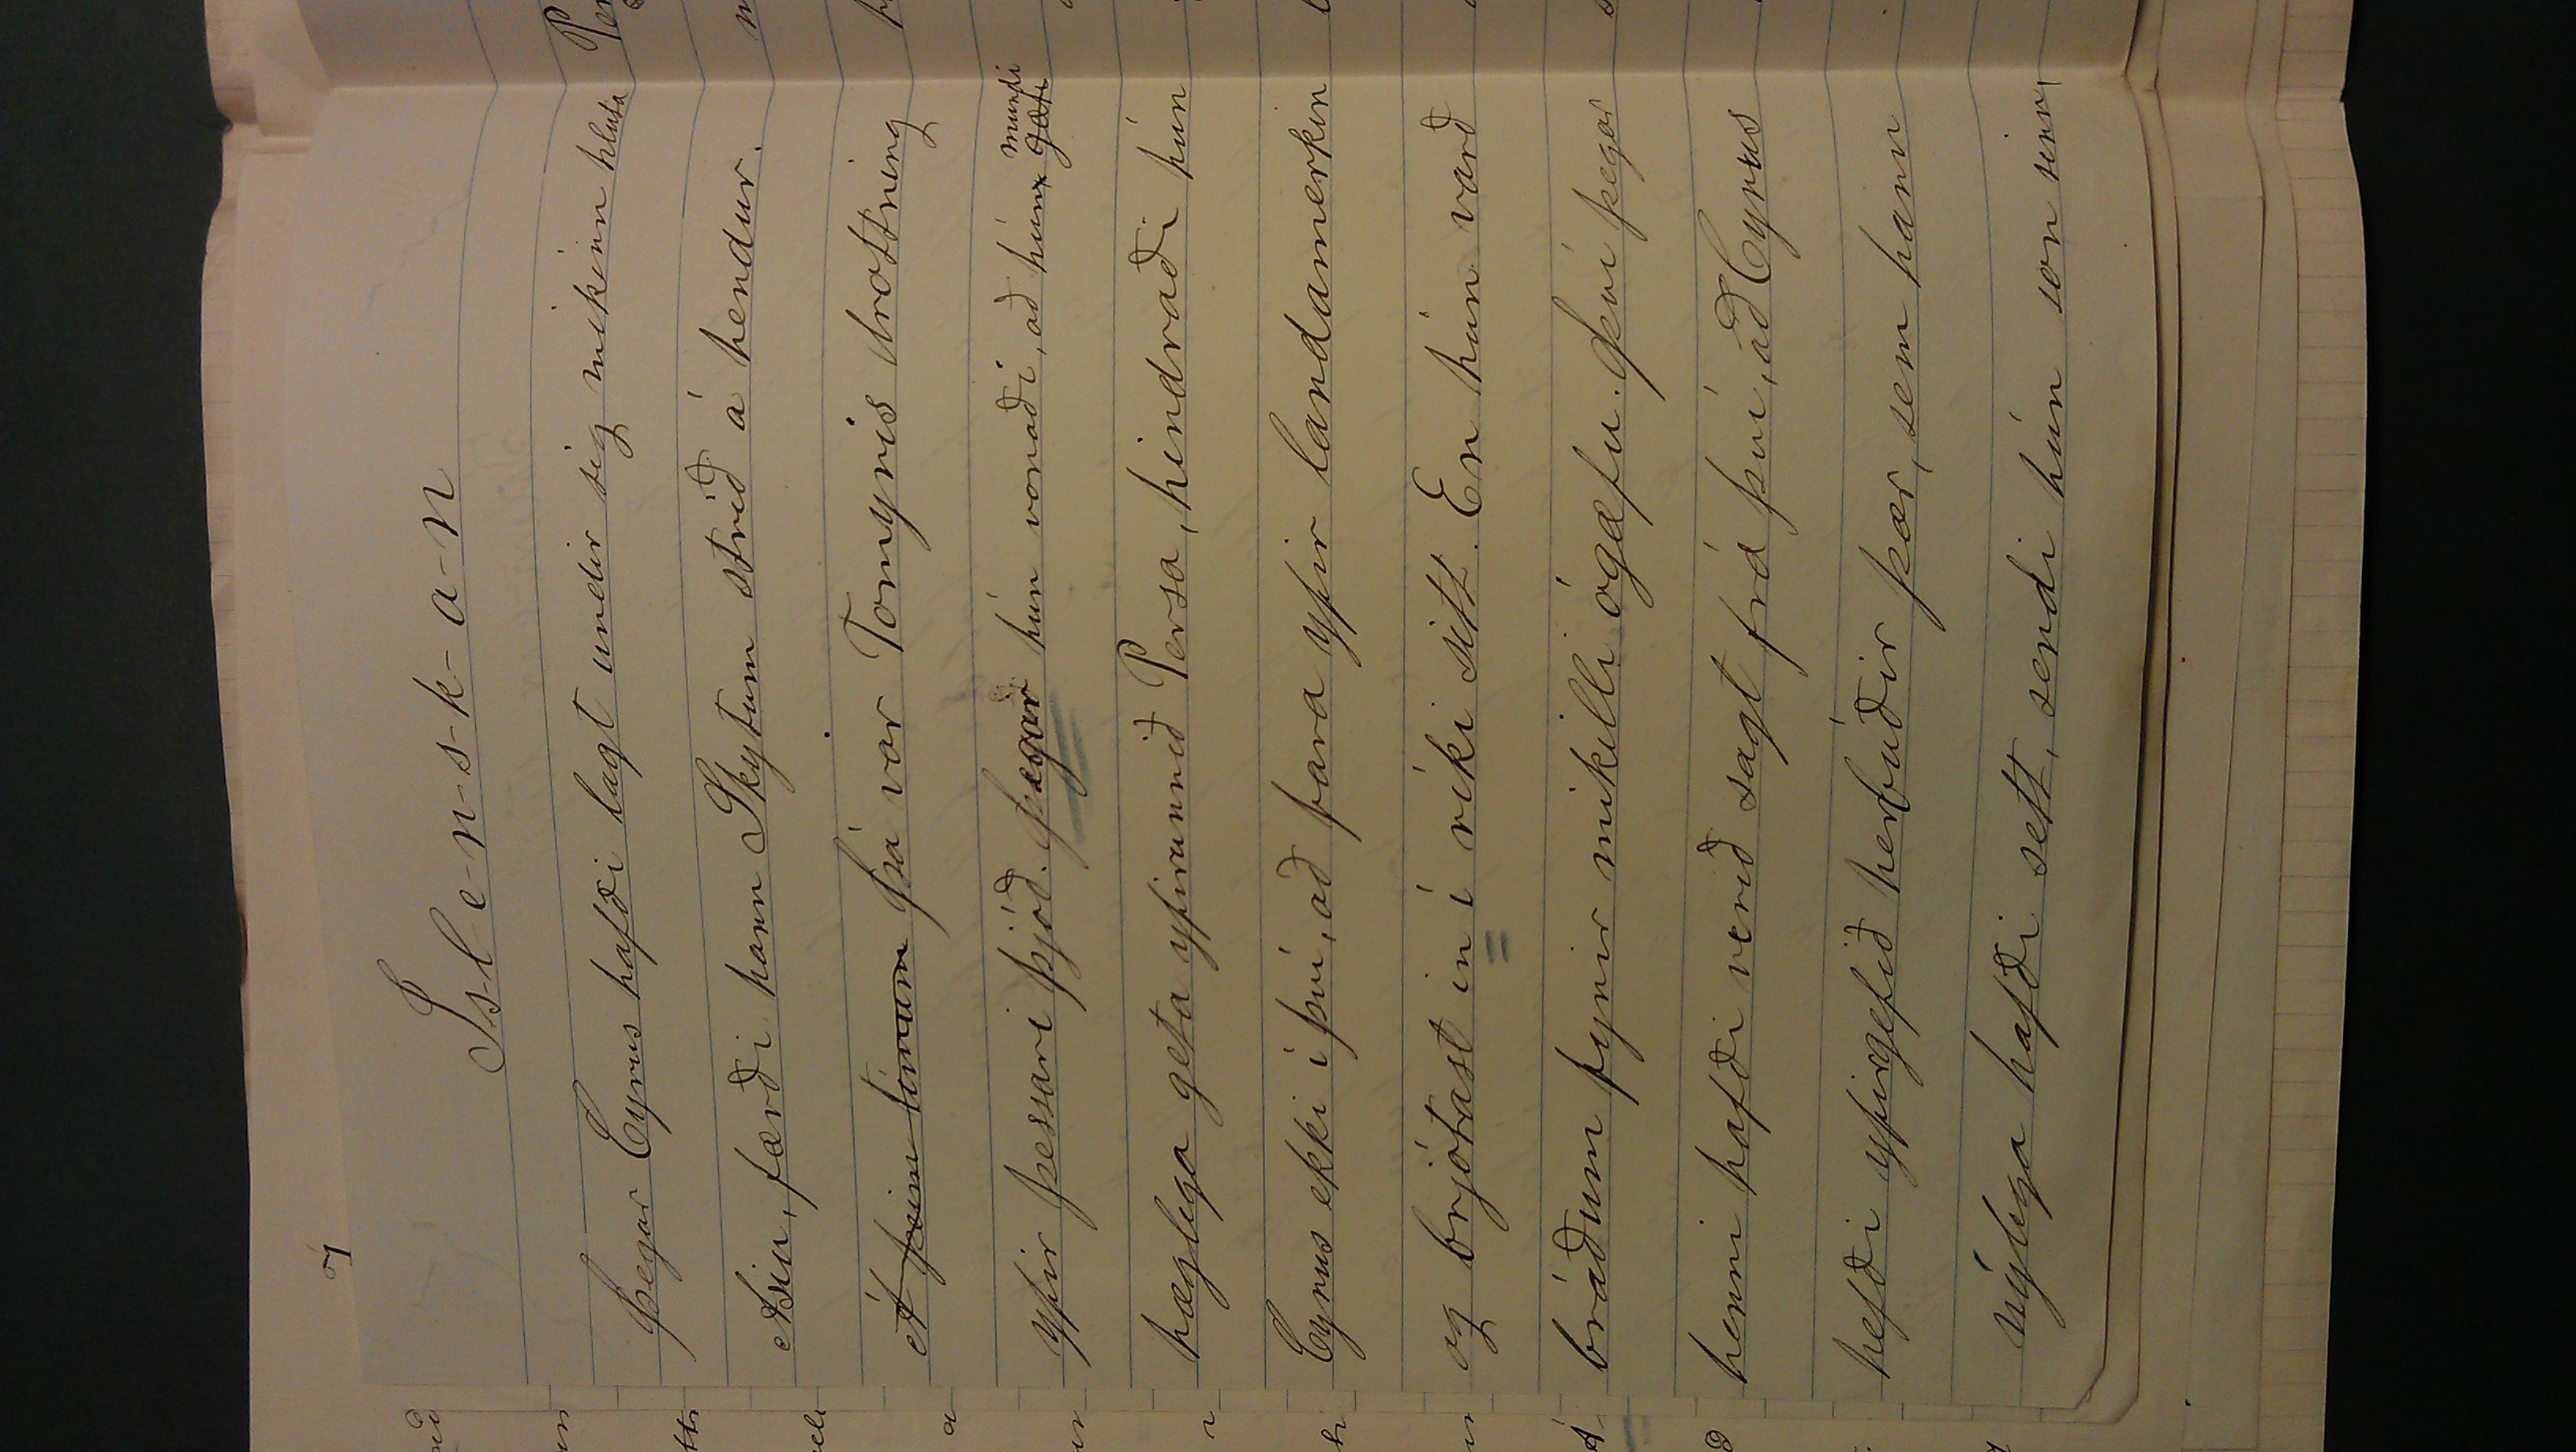 7
Ísl-e-n-s-k-a-n
Þegar Cyrus hafði lagt undir sig mikinn hluta
Asiu, færði hann Skytum stríð á hendur.
Á þeim tímum Þá var Tomyris drottning
yfir þessari þjóð. Þegar hún vonaði, að hún gæti mundi
hæglega geta yfirunnið Persa, hindraði hún
Cyrus ekki í því, að fara yfir landamerkin
og brjótast in í ríki sitt. En hún varð
bráðum fyrir mikilli ógæfu. Því þegar
henni hafði verið sagt frá því, að Cyrus
hefði yfirgefið herbúðir þær, sem hann
nýlega hafði sett, sendi hún son sinn